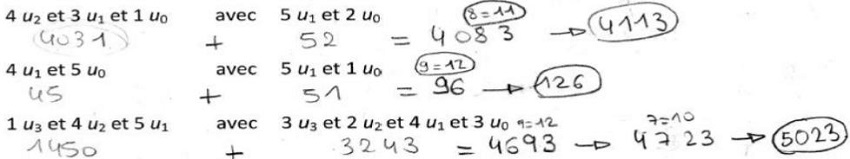 4 u₂ et 3 u₁ et 1 u₀ avec 5 u₁ et 2 u₀ 8=11
4031 + 52 = 4083 → 4113
4 u₁ et 5 u₀ avec 5 u₁ et 1 u₀ 9=12
45 + 51 = 96 → 126
1 u₃ et 4 u₂ et 5 u₁ avec 3 u₃ et 2 u₂ et 4 u₁ et 3 u₀ 9=12 7=10
1450 + 3243 = 4693 → 4723 → 5023